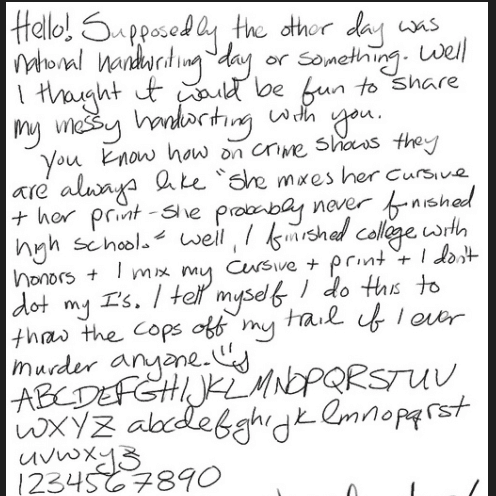 Hello! Supposedly the other day was
national handwriting day or something. Well
I thought it would be fun to share
my messy handwriting with you.
You know how on crime shows they
are always like "She mixes her cursive
+ her print - she probably never finished
high school." Well, I finished college with
honors + I mix my cursive + print + I don't
dot my I's. I tell myself I do this to
throw the cops off my trail if I ever
murder anyone.
ABCDEFGHIJKLMNOPQRSTUV
WXYZ abcdefghijklmnopqrst
uvwxyz
1234567890